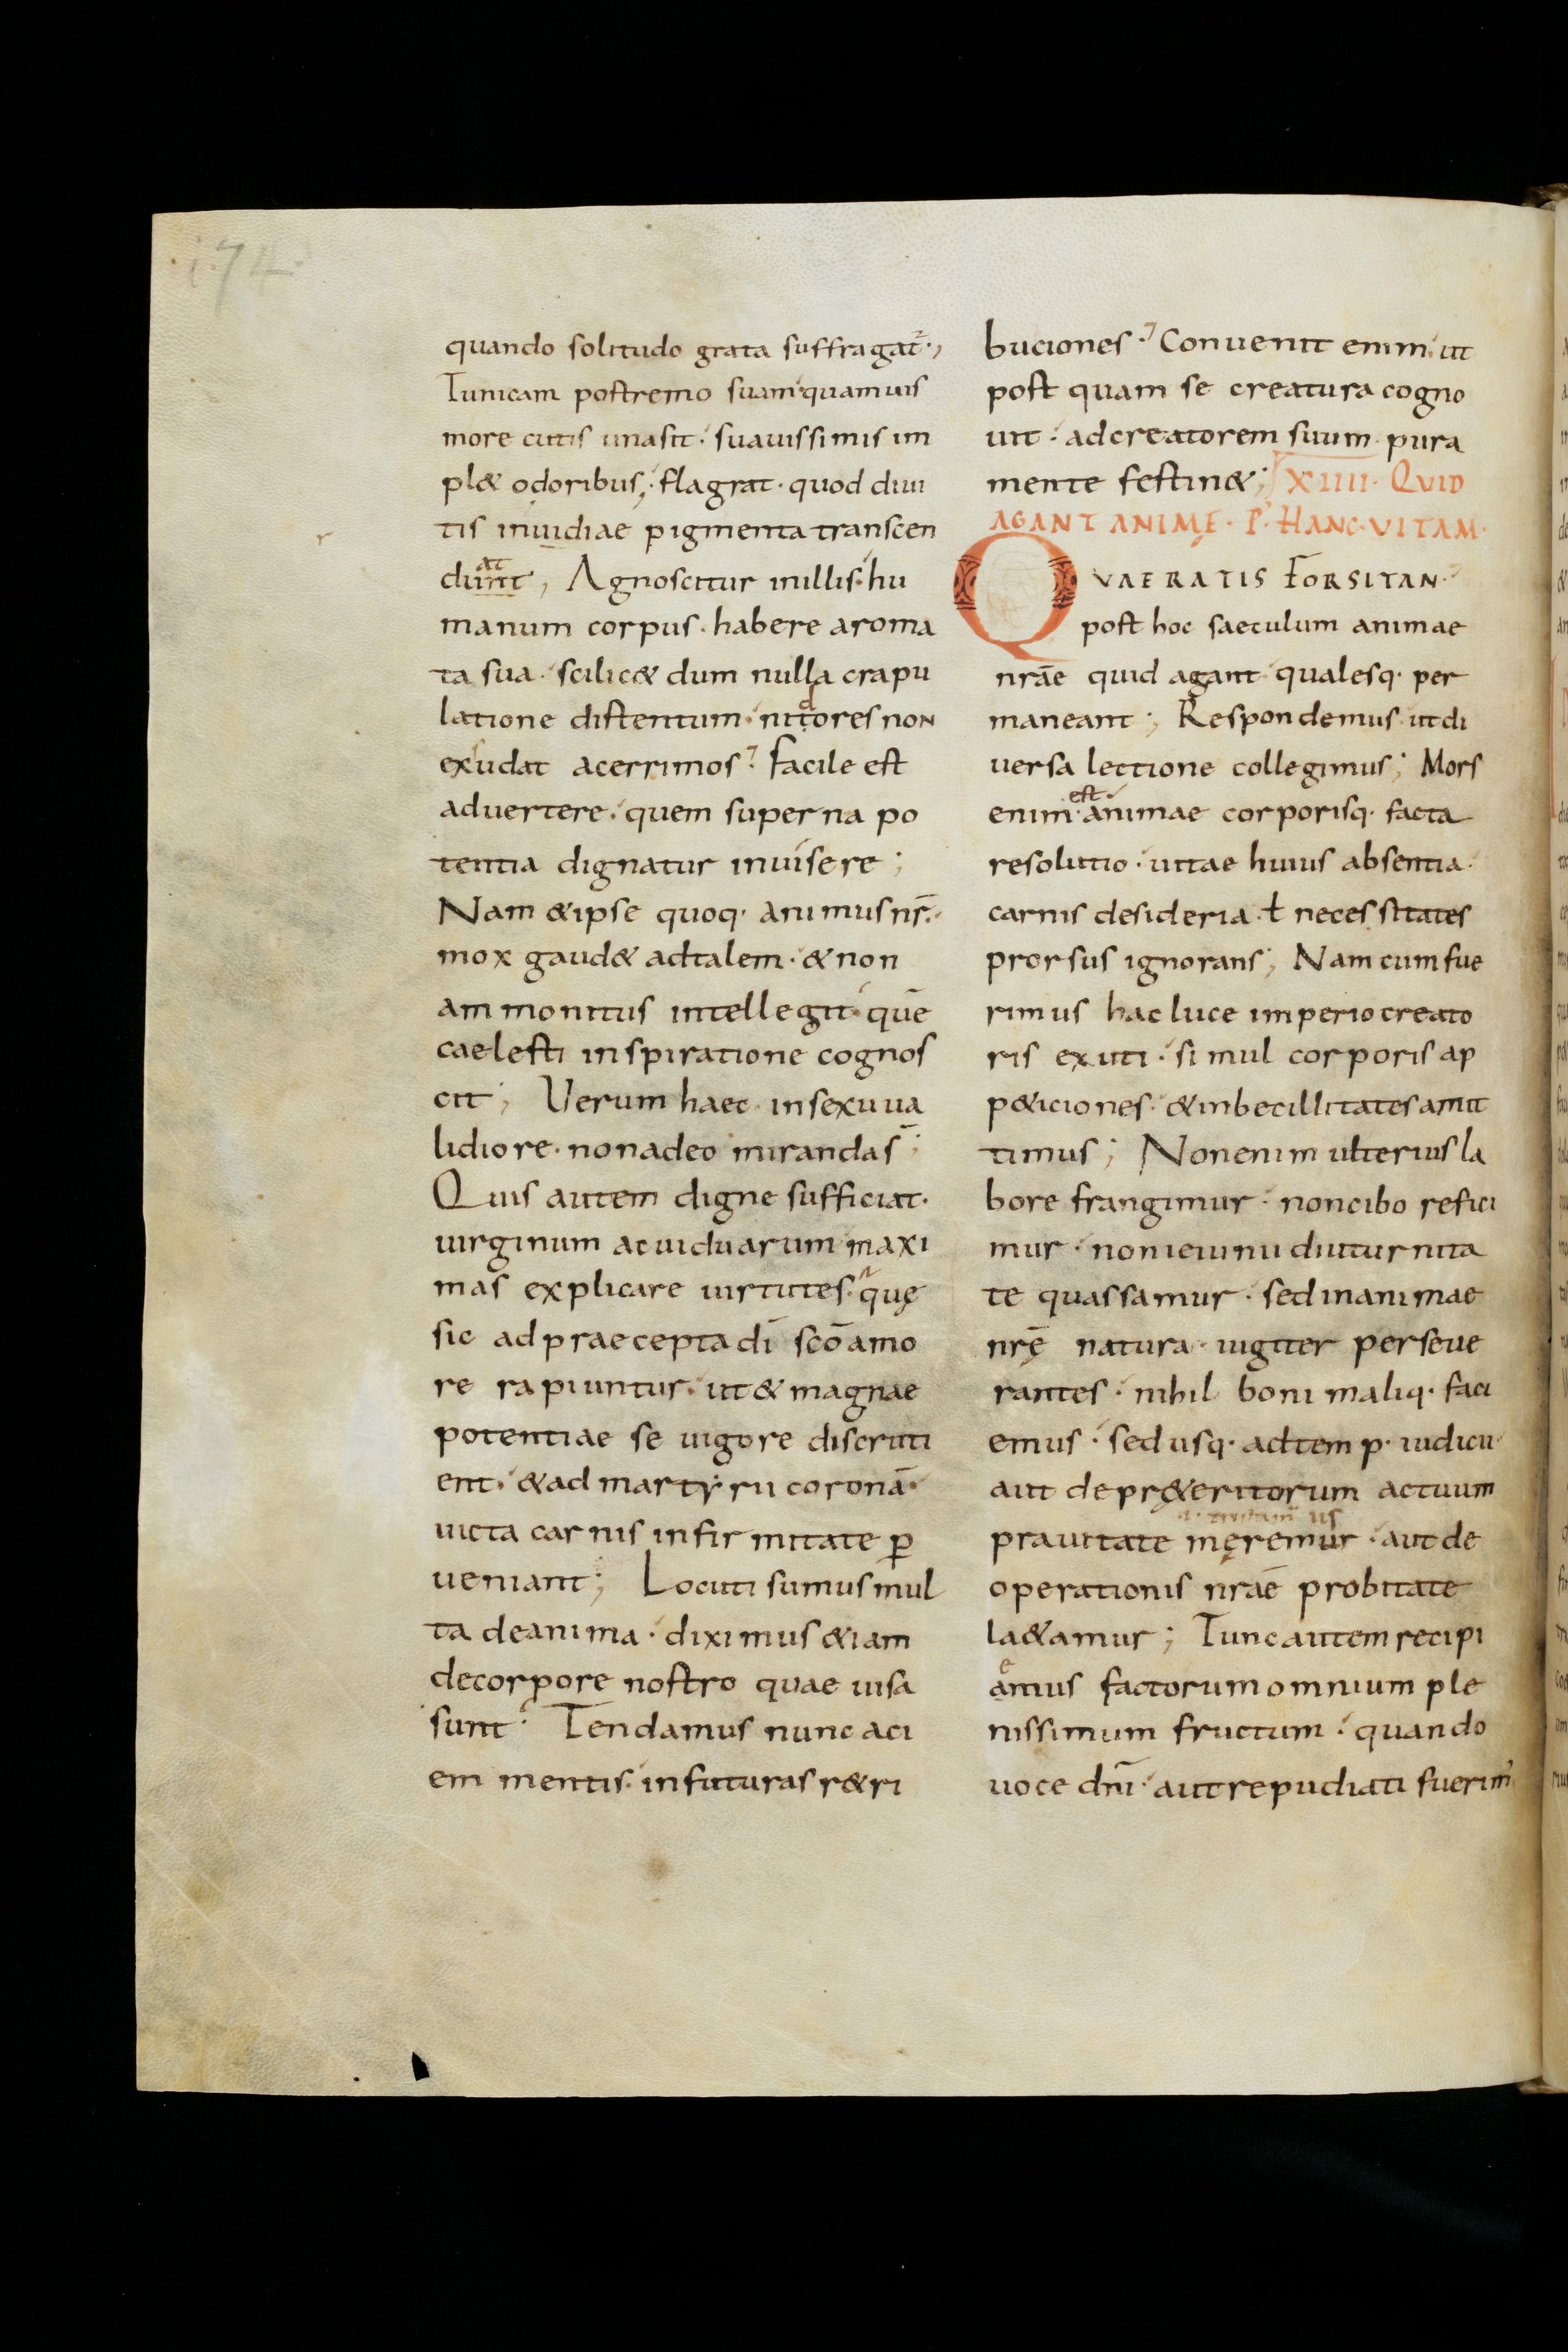 174
quando solitudo grata suffragat̄;
Tunicam postremo suam· quamuis
more cutis unasit· suauissimis im
pl& odoribus; flagrat· quod diui
tis inuidiae pigmenta transcen
dunt; Agnoscitur inillis· hu
at
manum corpus· habere aroma
ta sua· scilic& dum nulla crapu
latione distentum· nitores non
d
exudat acerrimos? Facile est
aduertere· quem superna po
tentia dignatur inuisere;
Nam &ipse quoq· animus nr̄·
mox gaud& adtalem· & non
ammonitus intellegit· quē
caelesti inspiratione cognos
cit; Uerum haec insexu ua
lidiore· nonadeo mirandas̄;
Quis autem digne sufficiat·
uirginum ac uiduarum maxi
mas explicare uirtutes· quę
sic adpraecepta dī scō amo
re rapiuntur· ut & magnae
potentiae se uigore discruti
ent· &ad martyrii coronā·
uicta carnis infirmitate ꝑ
ueniant; Locuti sumus mul
ta deanima· diximus &iam
decorpore nostro quae uisa
sunt· Tendamus nunc aci
em mentis· infuturas r&ri
buciones· Conuenit enim· ut
post quam se creatura cogno
uit· adcreatorem suum· pura
mente festin&; XIIII· QUID
AGANT ANIMĘ· P' HANC· VITAM·
QVAERATIS FORSITAN·
post hoc saeculum animae
nrāe quid agant· qualesq· per
maneant; Respondemus· ut di
uersa lectione collegimus; Mors
est
enim· animae corporisq· facta
resolutio· uitae huius absentia·
carnis desideria ł necessitates
prorsus ignorans; Nam cum fue
rimus hac luce imperio creato
ris exuti· simul corporis ap
p&iciones· &inbecillitates amit
timus; Nonenim ulterius la
bore frangimur· noncibo refici
mur· non ieiunii diuturnita
te quassamur· sed inanimae
nrę̄ natura· iugiter perseue
rantes· nihil boni maliq· faci
emus· sed usq· adtemp· iudicii·
aut depr&eritorum actuum
us
prauitate męremur· aut de
operationis nrāe probitate
la&amur; Tunc autem recipi
e
amus factorum omnium ple
nissimum fructum· quando
uoce dn̄i· aut repudiati fuerim'